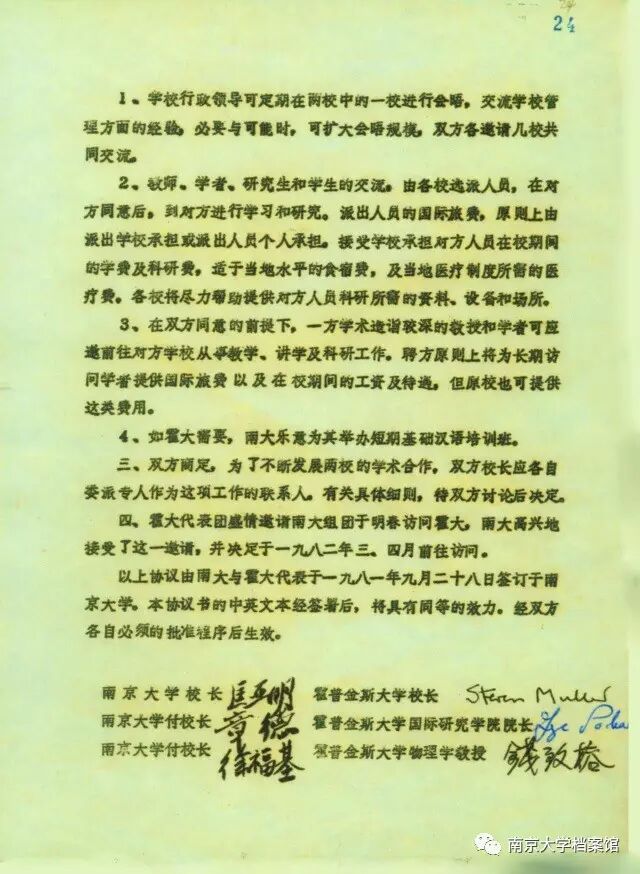 24
24
1、学校行政领导可定期在两校中的一校进行会晤，交流学校管
理方面的经验，必要与可能时，可扩大会晤规模，双方各邀请几校共
同交流。
2、教师、学者、研究生和学生的交流，由各校选派人员，在对
方同意后，到对方进行学习和研究。派出人员的国际旅费，原则上由
派出学校承担或派出人员个人承担。接受学校承担对方人员在校期间
的学费及科研费，适于当地水平的食宿费，及当地医疗制度所需的医
疗费。各校将尽力帮助提供对方人员科研所需的资料、设备和场所。
3、在双方同意的前提下，一方学术造诣较深的教授和学者可应
邀前往对方学校从事教学、讲学及科研工作。聘方原则上将为长期访
问学者提供国际旅费以及在校期间的工资及待遇，但原校也可提供
这类费用。
4、如霍大需要，南大乐意为其举办短期基础汉语培训班。
三、双方商定，为了不断发展两校的学术合作，双方校长应各自
委派专人作为这项工作的联系人。有关具体细则，待双方讨论后决定。
四、霍大代表团盛情邀请南大组团于明春访问霍大，南大高兴地
接受了这一邀请，并决定于一九八二年三、四月前往访问。
以上协议由南大与霍大代表于一九八一年九月二十八日签订于南
京大学。本协议书的中英文本经签署后，将具有同等的效力。经双方
各自必须的批准程序后生效。
南京大学校长 匡亚明 霍普金斯大学校长 Steven Muller
南京大学付校长 章德 霍普金斯大学国际研究学院院长
南京大学付校长 徐福基 霍普金斯大学物理学教授 钱致榕
南京大学档案馆